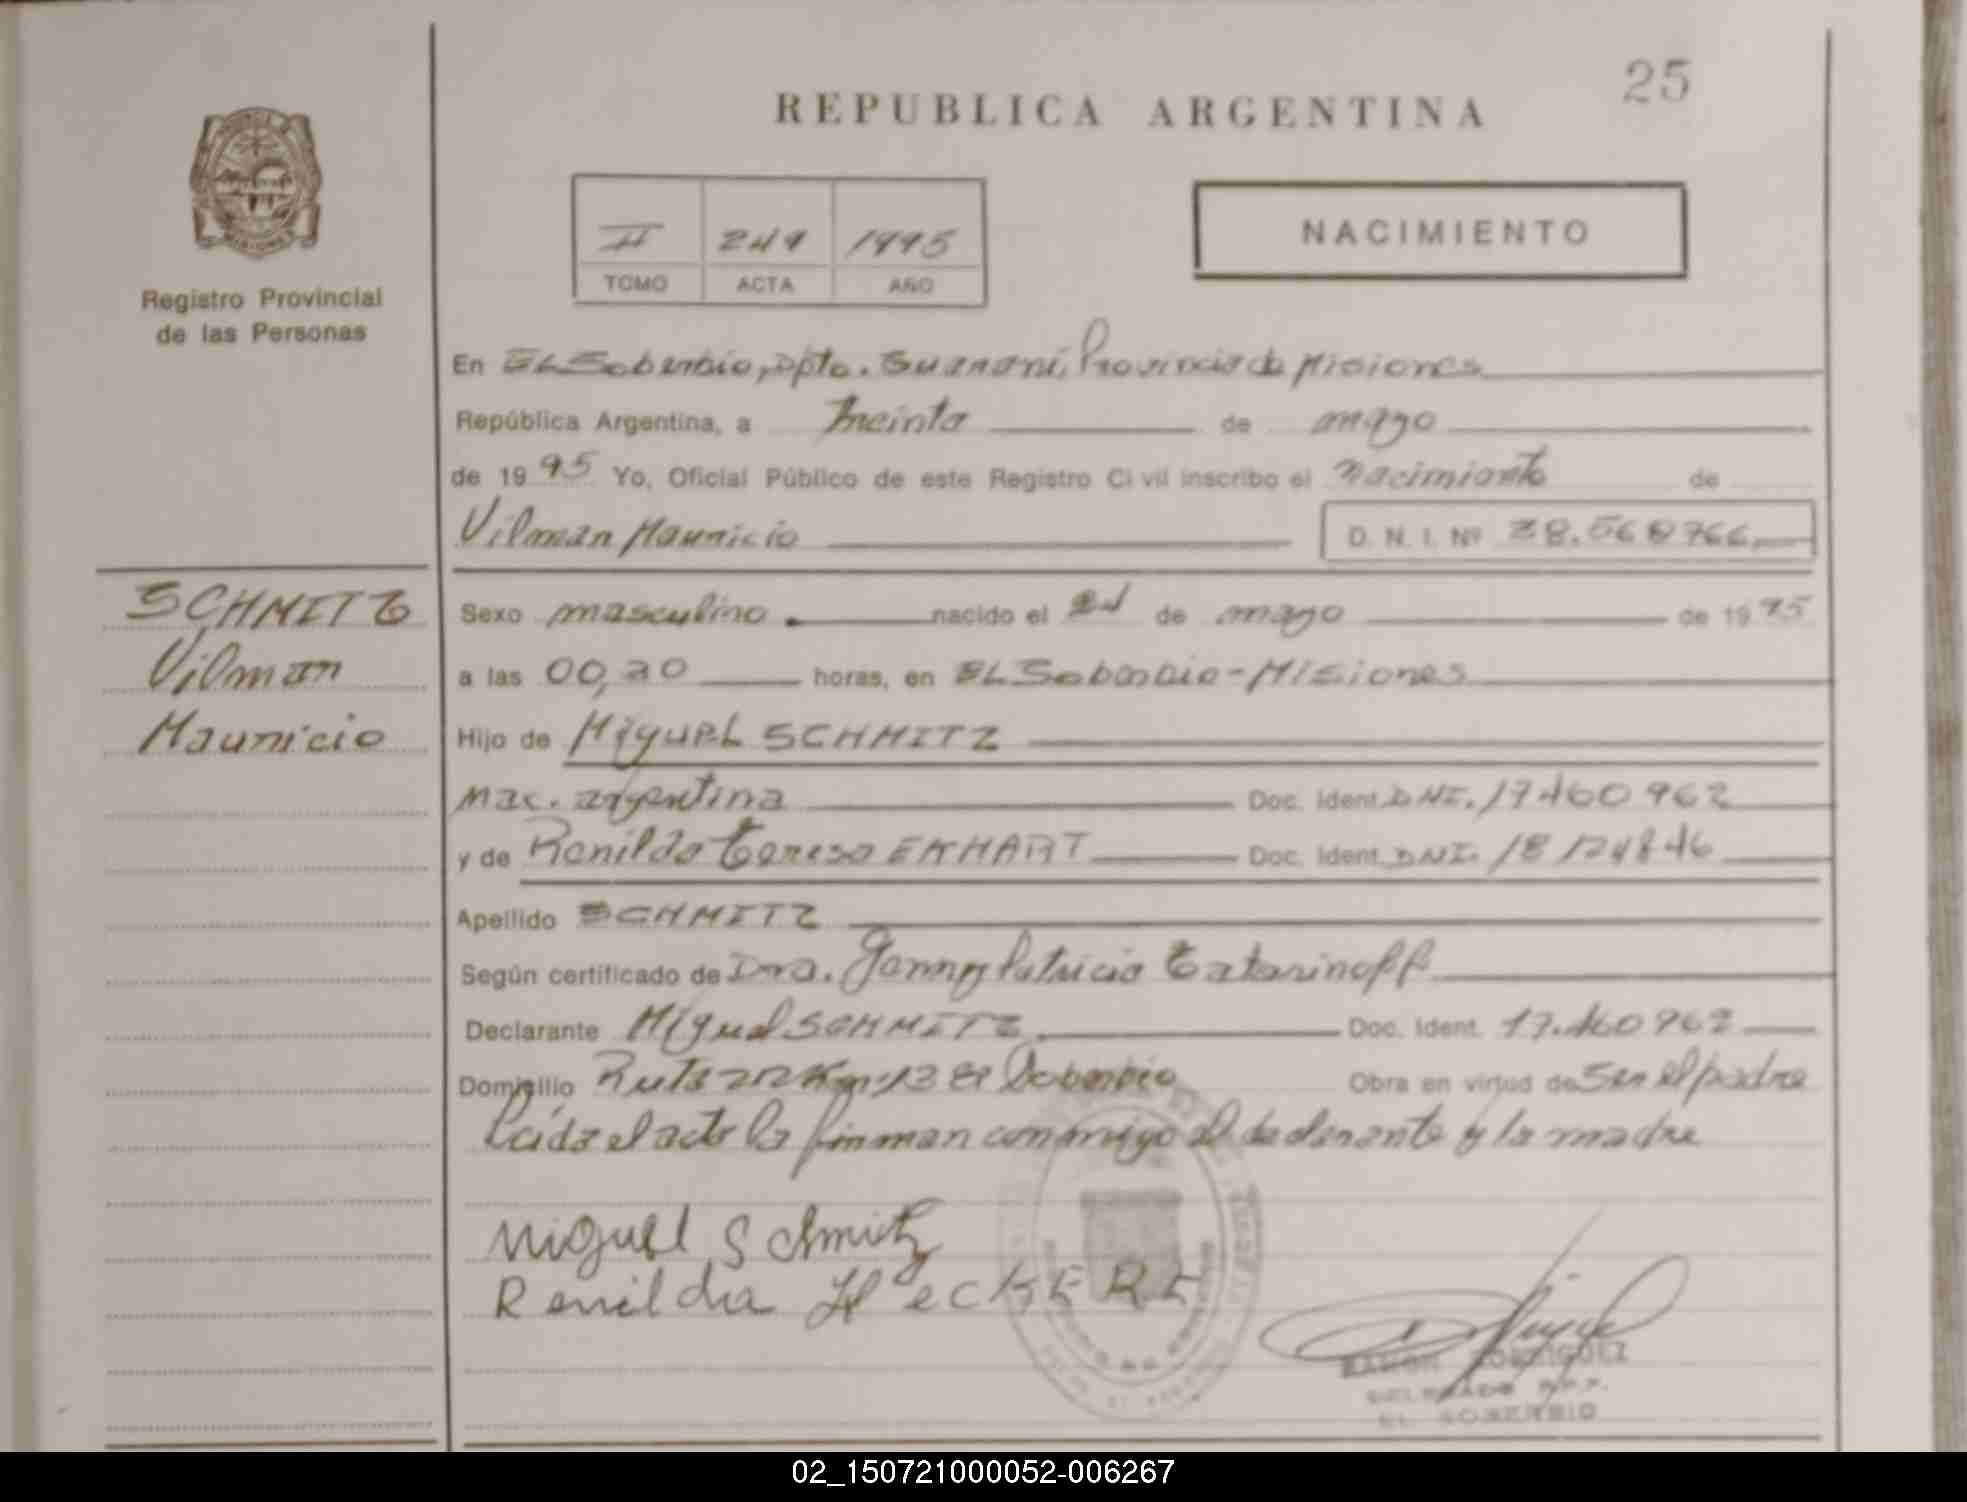 25
REPUBLICA ARGENTINA
II 249 1995
TOMO ACTA AÑO
NACIMIENTO
Registro Provincial
de las Personas
En El Soberbio, Dpto. Guaraní, Provincia de Misiones
República Argentina, a Treinta de mayo
de 1995 Yo, Oficial Público de este Registro Civil inscribo el nacimiento de
Vilmar Mauricio D. N. I. Nº
SCHMITZ
Vilmar
Mauricio
Sexo masculino. nacido el de mayo de 1995
a las horas, en El Soberbio - Misiones
Hijo de Miguel SCHMITZ
Nac. argentina Doc. Ident. DNI. 17.460 962
y de Renilda Teresa EKHART Doc. Ident. DNI.
Apellido SCHMITZ
Según certificado de Dra. Patricia Tatarinoff
Declarante Miguel SCHMITZ Doc. Ident. 17.460 962
Domicilio Ruta 212 Km. 13 El Soberbio Obra en virtud de Ser el padre
Leída el acta la firman conmigo el declarante y la madre
Miguel Schmitz
Renilda
RAMON RODRIGUEZ
DELEGADO R.P.P.
EL SOBERBIO
02_150721000052-006267